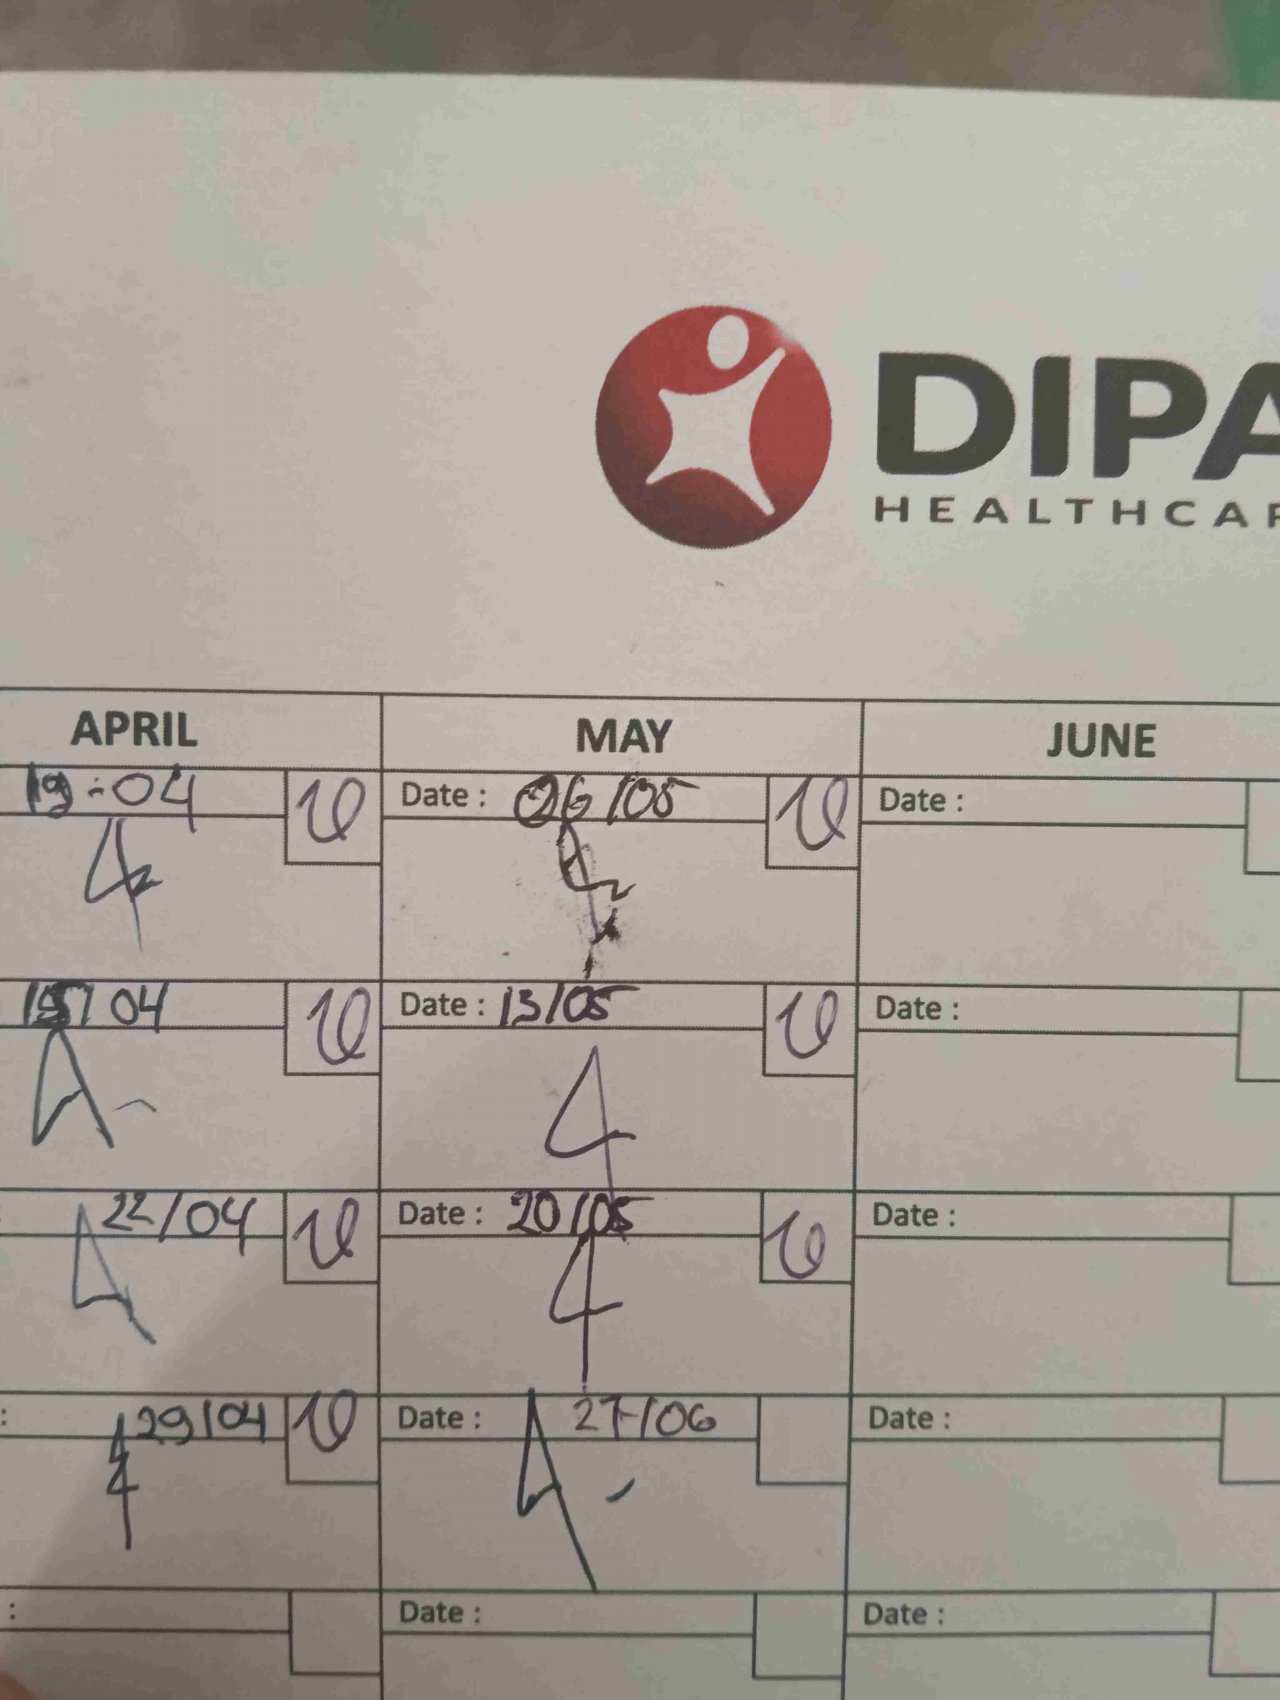 DIPA
HEALTHCAR
APRIL MAY JUNE
19-04 Date : 06/05 Date :
15/04 Date : 13/05 Date :
22/04 Date : 20/05 Date :
: 29/04 Date : 27/06 Date :
: Date : Date :